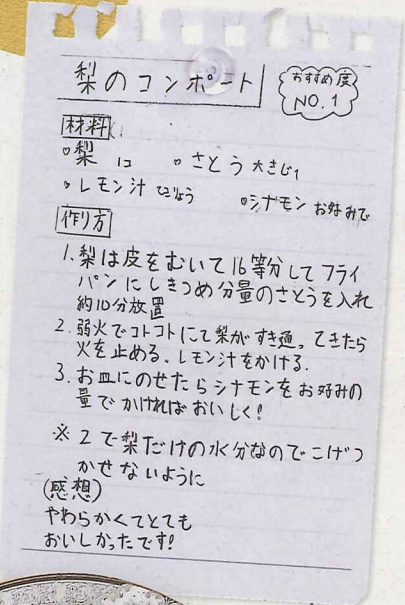 梨のコンポート
おすすめ度
NO.1
材料
・梨 1コ ・さとう 大さじ1
・レモン汁 てきりょう ・シナモン お好みで
作り方
1.梨は皮をむいて16等分してフライ
パンにしきつめ分量のさとうを入れ
約10分放置
2.弱火でコトコトにて梨がすき通ってきたら
火を止める。レモン汁をかける.
3.お皿にのせたらシナモンをお好みの
量でかければおいしく!
※2で梨だけの水分なのでこげつ
かせないように
(感想)
やわらかくてとても
おいしかったです!